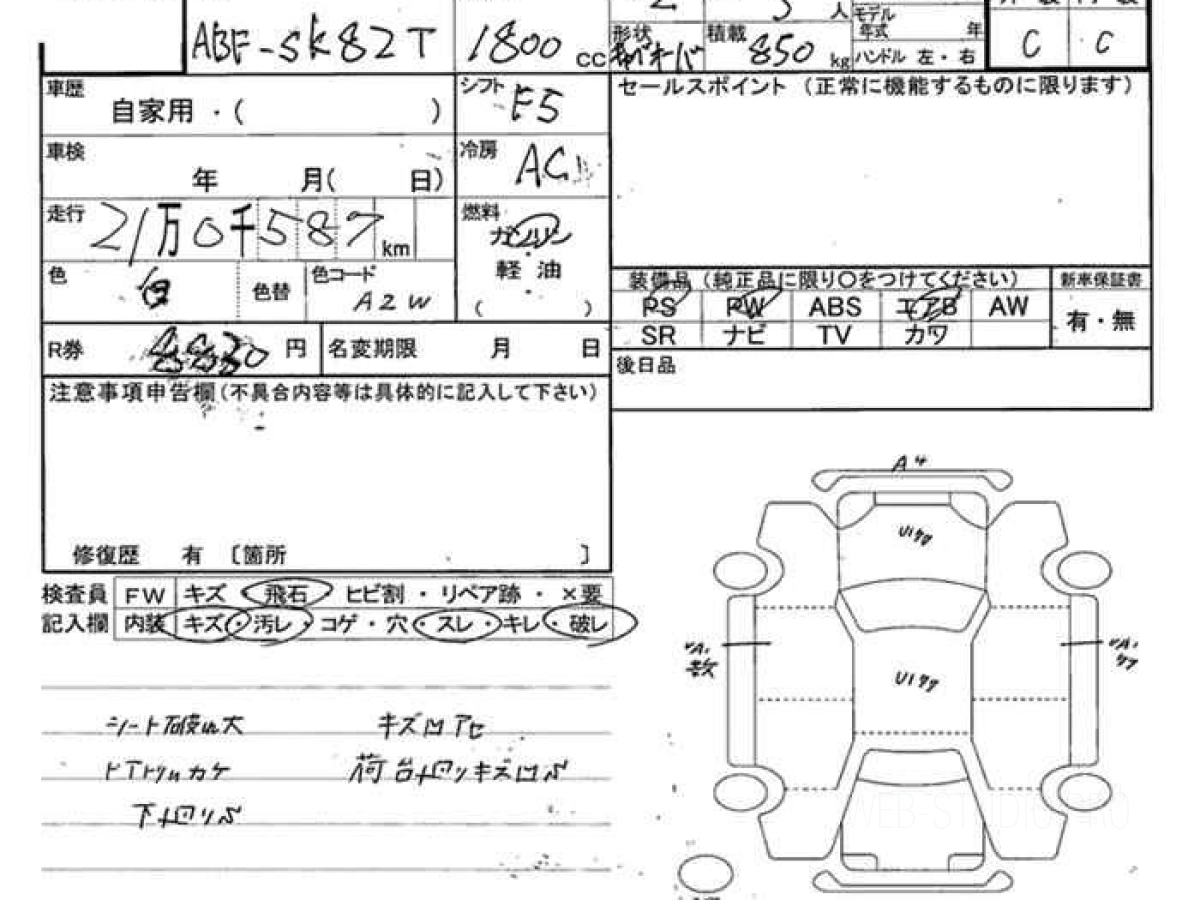 人
モデル
年式 年
ABF-SK82T 1800 cc
形状
積載 850 kg
ハンドル 左・右
C C
車歴 自家用・( )
シフト F5
セールスポイント (正常に機能するものに限ります)
車検 年 月( 日)
冷房 AC
走行 21万0千587km
燃料 ガソリン
軽・油
( )
色 白 色替 色コード A2W
装備品 (純正品に限り○をつけてください)
新車保証書
PS PW ABS エアB AW
有・無
SR ナビ TV カワ
R券 円 名変期限 月 日
後日品
注意事項申告欄(不具合内容等は具体的に記入して下さい)
A4
U1
修復歴 有 〔箇所 〕
検査員 FW キズ・飛石・ヒビ割・リペア跡・×要
記入欄 内装 キズ・汚レ・コゲ・穴・スレ・キレ・破レ
U1
シート破れ大 キズ凹アセ
カケ 荷台
下廻りS
WEB-STUDIO.PRO